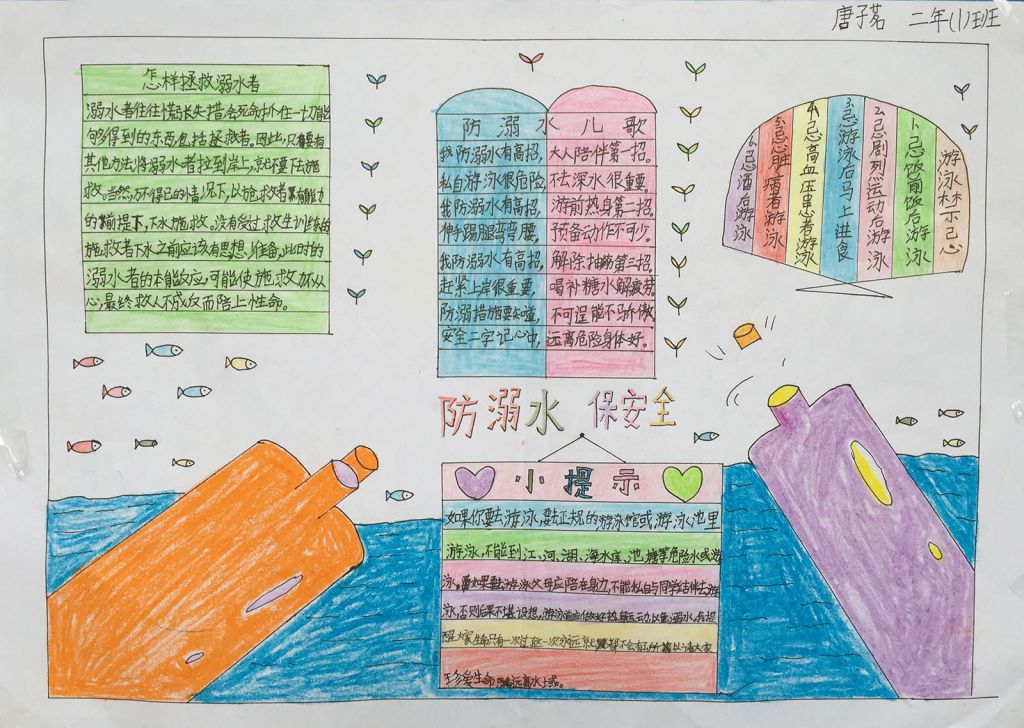 唐子茗 二年(1)班
怎样拯救溺水者
溺水者往往惊长失措会死命抓住一切能
够得到的东西包括拯救者。因此,只有要有
其他方法将溺水者拉到岸上,就不要下去施
救。当然,万不得已的情况下,以施救者有能力
的前提下,下水施救。没有受过救生训练的
施救者下水之前应该有思想准备,此时的
溺水者的本能反应,可能使施救
心最终救人不成反而陪上性命。
防溺水儿歌
我防溺水有高招,大人陪伴第一招。
私自游泳很危险,不去深水很重要。
我防溺水有高招,游前热身第一招。
伸手踢腿弯弯腰,预备动作不可少。
我防溺水有高招,解除抽筋第三招。
赶紧上岸很重要,喝补糖水解疲劳。
防溺措施要知道,不可逞能不骄傲,
安全二字记心中,远离危险身体好。
游泳禁示忌
1忌饭前饭后游泳
2忌剧烈运动后游泳
3忌游泳后马上进食
4忌高血压患者游泳
5忌心脏病者游泳
6忌酒后游泳
防溺水 保安全
小提示
如果你要去游泳,要去正规的游泳馆或游泳池里
游泳,不能到江、河、湖、海水库、池塘等危险水或游
泳,如果要去游泳父母应陪在身边,不能私自与同学结伴去游
泳,否则后果不堪设想,游泳前应做好热身运动以免溺水,我提
醒大家生命只有一次过这一次永远就都不会有了所以请大家
珍爱生命远离水域。